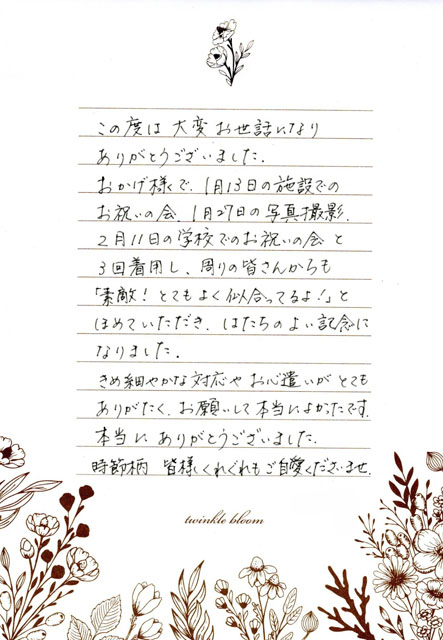 この度は 大変 お世話になり
ありがとうございました.
おかげ様で. 1月13日の施設での
お祝いの会. 1月27日の写真撮影.
2月11日の学校でのお祝いの会と
3回着用し、周りの皆さんからも
「素敵！とてもよく似合ってるよ！」と
ほめていただき、はたちのよい記念に
なりました.
きめ細やかな対応や お心遣いがとても
ありがたく、お願いして本当によかったです.
本当に ありがとうございました.
時節柄 皆様くれぐれもご自愛くださいませ.
twinkle bloom